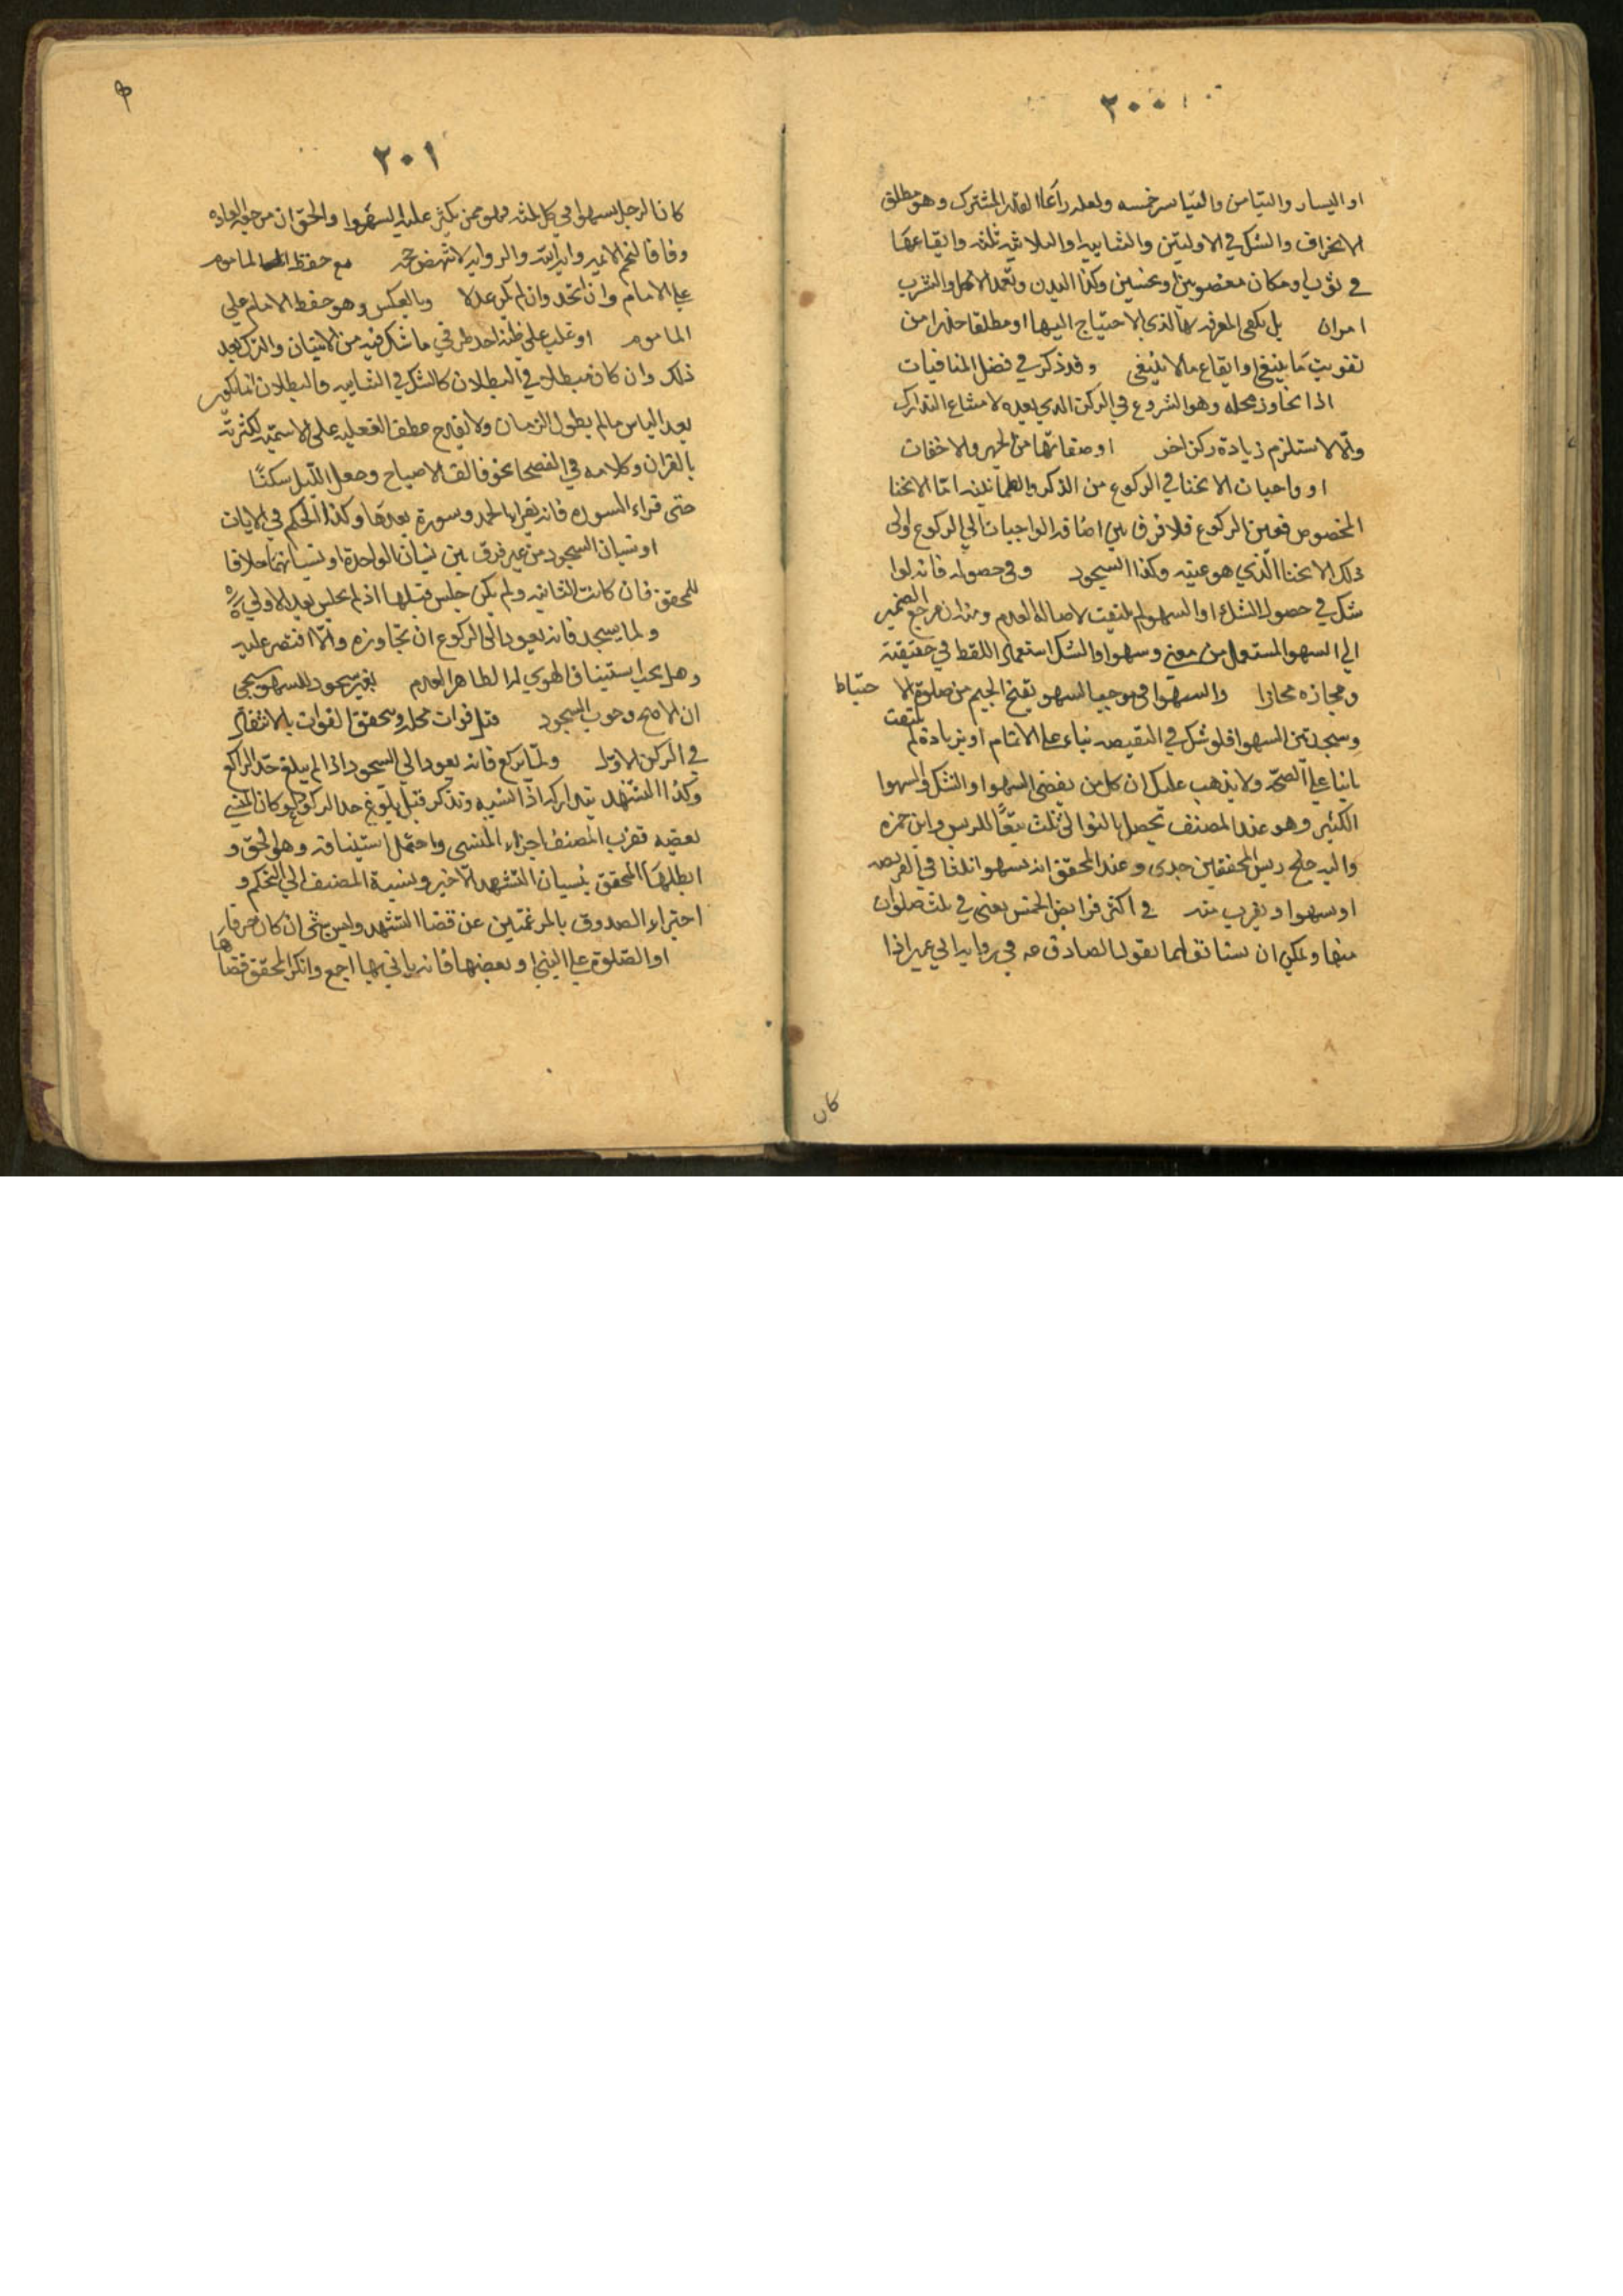 ٢٠٠
او اليسار والتيامن والتياسر خمسه ولعله راعا القدر المشترك وهو مطلق
الانحراف والشك في الاوليتين والثنائيه او الثلاثيه ثلثه وايقاعها
في ثوب او مكان مغصوبين او نجسين وكذا البدن وتعمد الاكل والشرب
امران بل يكفي المعرفه بالذي الاحتياج اليها او مطلقا حذرا من
تفويت ما ينبغي او ايقاع ما لا ينبغي وقد ذكر في فضل المنافيات
اذا تجاوز محله وهو الشروع في الركن الذي بعده لامتناع التدارك
والا لاستلزم زيادة ركن اخر او صفاتها من الجهر والاخفات
او واجبات الانحنا في الركوع من الذكر والطمانينه اما الانحنا
المخصوص فعين الركوع فلا فرق بين اضافه الواجبات الي الركوع او الي
ذلك الانحنا الذي هو عينه وكذا السجود وفي حصوله فانه لوا
شك في حصول الشك او السهو لم يلتفت لاصالة العدم ومنه ان مرجع الضمير
الي السهو المستعمل من معني وسهوا والشك استعمال اللفظ في حقيقته
ومجازه مجازا والسهوا في موجب السهو بفتح الجيم من صلوة الا حتياط
وسجدتين السهو فلو شك في النقيصه بناء علي الاتمام او بزيادة لم يلتفت
بانيا علي الصحه ولا يذهب عليك ان كل من يفضي السهوا والشك والسهوا
الكثير وهو عند المصنف تحصل بالتوالي ثلث تبعًا للدريس وابن حمزه
واليه جنح رييس المحققين جدي وعند المحقق انه يسهوا ثلاثا في الفريضه
او يسهوا ويقرب منه في اكثر فرايض الخمس يعني في ثلث صلوات
منها ويمكن ان يستانق لما بقول الصادق عه في رواية ابي عمير اذا
كان
٢٠١
كان الرجل يسهوا في كل ثلثه فهو ممن يكثر عليه السهوا والحق ان مرجعه العاده
وفاقا لنجم الائمه وابن ادريس والروايه لا تنهض حجه مع حفظ الماموم
علي الامام وان اتحد وان لم يكن عدلا وبالعكس وهو حفظ الامام علي
الماموم او غلب علي ظنه احد طرفي ما شك فيه من الاتيان والترك بعد
ذلك وان كان مبطلا في البطلان كالشك في الثنائيه والبطلان انما يكون
بعد الياس ما لم يطول الزمان ولا يقدح عطف الفعليه علي الاسميه لكثرته
بالقران وكلامه في الفصحا نحو فالق الاصباح وجعل الليل سكنًا
حتى قراء السوره فانه يقراء الحمد وسورة بعدها وكذا الحكم في الايات
او نسيان السجود من غير فرق بين نسيان الواحدة او نسيانهما خلافا
للمحقق فان كانت الثانيه ولم يكن جلس قبلها اذ لم يجلس بعد الاولي
ولما يسجد فانه يعود الى الركوع ان تجاوزه والا اقتصر عليه
وهل يجب استيناف الهوي له الظاهر العدم بغير سجود للسهو يجي
ان الاصح وجوب السجود قبل فوات محله ويتحقق الفوات بالانتقال
في الركن الاول ولما يركع فانه يعود الي السجود اذا لم يبلغ حد الراكع
وكذا التشهد يتداركه اذا نسيه وتذكر قبل بلوغ حد الركوع ولو كان المنسي
بعضه فقرب المصنف اجزاء المنسي واحتمل استينافه وهو الحق و
ابطلها المحقق بنسيان التشهد الاخير ونسبة المصنف الي التحكم و
اجتزاء الصدوق بالمرغمتين عن قضا التشهد وليس بشئ ان كان
او الصلوة علي النبي او بعضها فانه ياتي بها اجمع وانكر المحقق قضاها